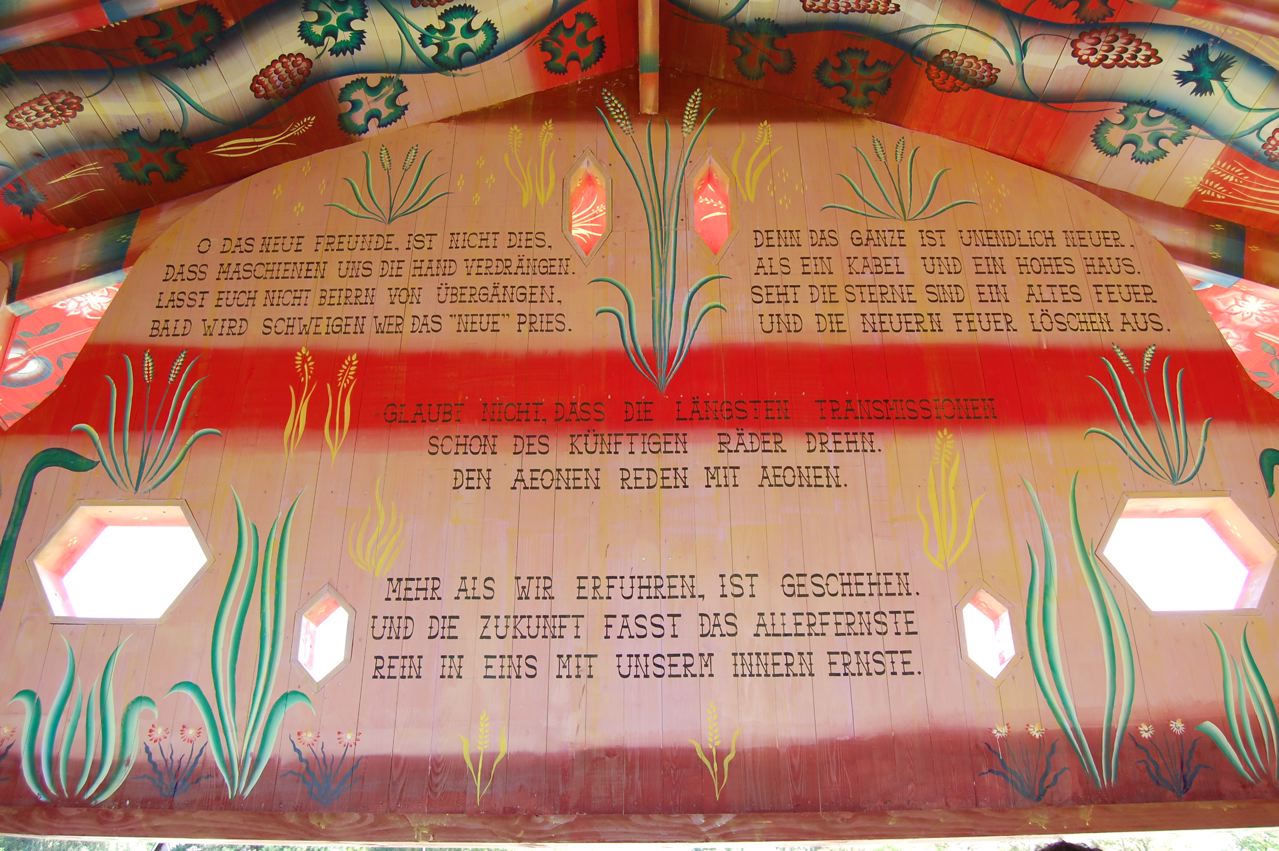 O DAS NEUE FREUNDE, IST NICHT DIES,
DASS MASCHIENEN UNS DIE HAND VERDRÄNGEN.
LASST EUCH NICHT BEIRRN VON ÜBERGÄNGEN,
BALD WIRD SCHWEIGEN WER DAS "NEUE" PRIES.
DENN DAS GANZE IST UNENDLICH NEUER,
ALS EIN KABEL UND EIN HOHES HAUS.
SEHT DIE STERNE SIND EIN ALTES FEUER
UND DIE NEUERN FEUER LÖSCHEN AUS.
GLAUBT NICHT, DASS DIE LÄNGSTEN TRANSMISSIONEN
SCHON DES KÜNFTIGEN RÄDER DREHN.
DEN AEONEN REDEN MIT AEONEN.
MEHR ALS WIR ERFUHREN, IST GESCHEHEN.
UND DIE ZUKUNFT FASST DAS ALLERFERNSTE
REIN IN EINS MIT UNSERM INNERN ERNSTE.